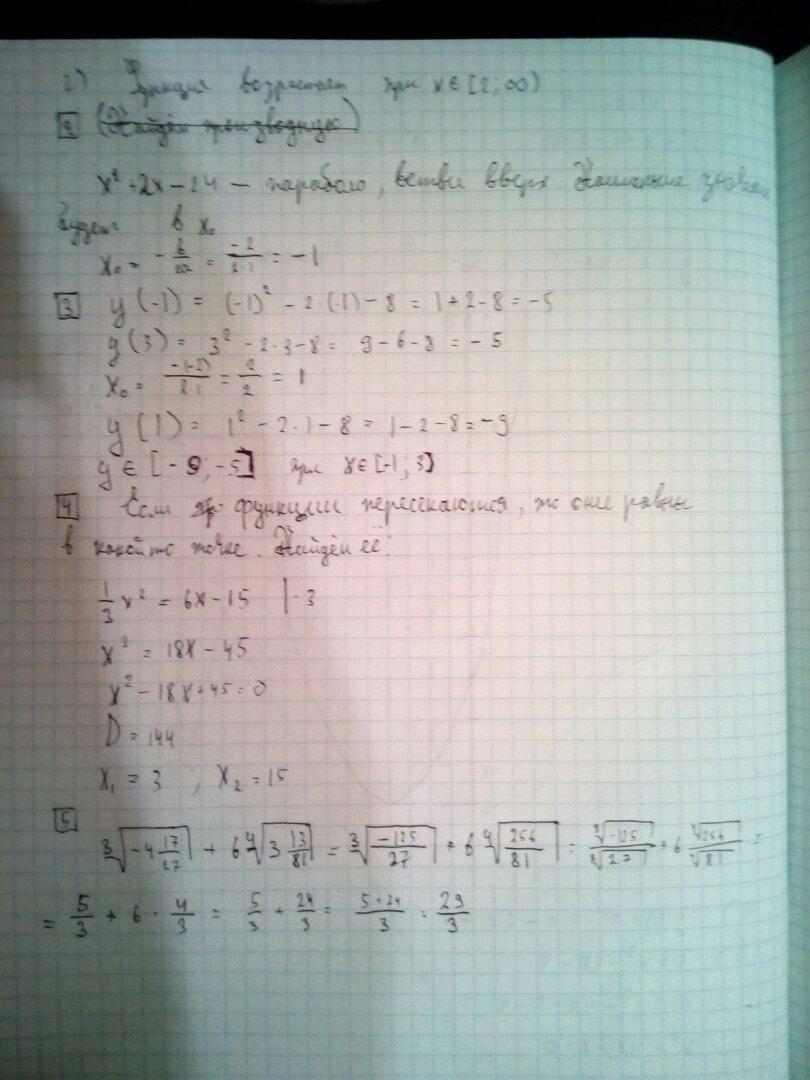 2) Функция возрастает при x ∈ [2; ∞)
2 (Найдём производную)
x² + 2x - 24 — парабола, ветви вверх
будет в x₀
x₀ = -b/2a = -2/2·1 = -1
3 y(-1) = (-1)² - 2·(-1) - 8 = 1 + 2 - 8 = -5
y(3) = 3² - 2·3 - 8 = 9 - 6 - 8 = -5
x₀ = -(-2)/2·1 = 2/2 = 1
y(1) = 1² - 2·1 - 8 = 1 - 2 - 8 = -9
y ∈ [-9; -5] при x ∈ [-1; 3]
4 Если функции пересекаются, то они равны
в какой то точке. Найдём её:
1/3 x² = 6x - 15 | · 3
x² = 18x - 45
x² - 18x + 45 = 0
D = 144
x₁ = 3 , x₂ = 15
5 ∛(-4 17/27) + 6∜(3 13/81) = ∛(-125/27) + 6∜(256/81) = ∛-125/∛27 + 6 ∜256/∜81 =
= 5/3 + 6 · 4/3 = 5/3 + 24/3 = 5+24/3 = 29/3